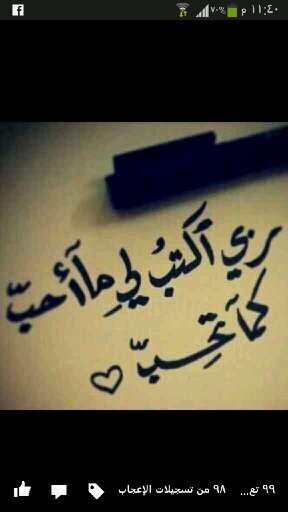 ١١:٤٠ م ٧٠%
ربي اكتب لي مآ أحبّ
كمآ تحبّ
٩٩ تع... ٩٨ من تسجيلات الإعجاب